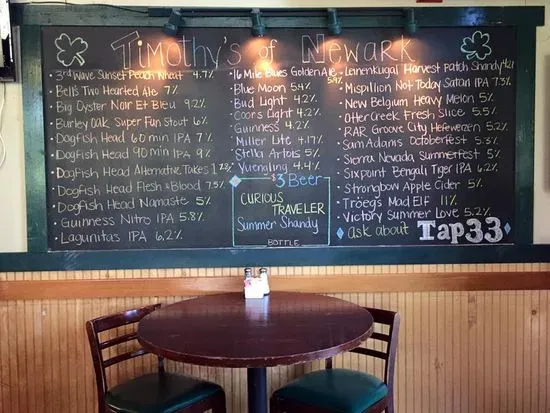 Timothy's of Newark
3rd Wave Sunset Peach Wheat 4.7%
Bell's Two Hearted Ale 7%
Big Oyster Noir Et Bleu 9.2%
Burley Oak Super Fun Stout 6%
Dogfish Head 60 min IPA 7%
Dogfish Head 90 min IPA 9%
Dogfish Head Alternative Takes 1
Dogfish Head Flesh & Blood 7.5%
Dogfish Head Namaste 5%
Guinness Nitro IPA 5.8%
Lagunitas IPA 6.2%
16 Mile Blues Golden Ale
Blue Moon 5.4%
Bud Light 4.2%
Coors Light 4.2%
Guinness 4.2%
Miller Lite 4.17%
Stella Artois 5%
Yuengling 4.4%
$3 Beer
Curious
Traveler
Summer Shandy
Bottle
Leinenkugal Harvest Patch Shandy 4.2%
Mispillion Not Today Satan IPA 7.3%
New Belgium Heavy Melon 5%
Otter Creek Fresh Slice 5.5%
RAR Groove City Hefeweizen 5.2%
Sam Adams Octoberfest 5.3%
Sierra Nevada Summerfest 5%
Sixpoint Bengali Tiger IPA 6.2%
Strongbow Apple Cider 5%
Tröegs Mad Elf 11%
Victory Summer Love 5.2%
ask about Tap33